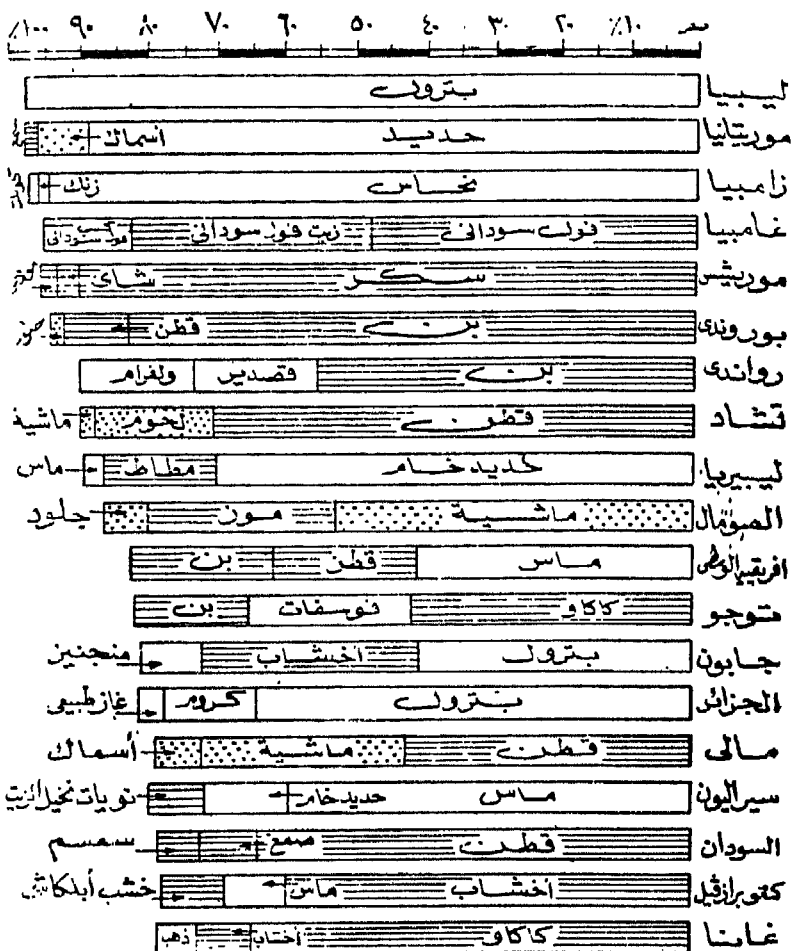 صفر ٪١٠ ٢٠ ٣٠ ٤٠ ٥٠ ٦٠ ٧٠ ٨٠ ٩٠ ٪١٠٠
ليبيا بترول
موريتانيا حديد أسماك
زامبيا نحاس زنك
غامبيا فول سوداني زيت فول سوداني
موريشس سكر شاى
بوروندى بن قطن
رواندى بن قصدير ولفرام
تشاد قطن لحوم ماشية
ليبيريا حديد خام مطاط ماس
الصومال ماشية موز جلود
افريقيا الوسطى ماس قطن بن
توجو كاكاو فوسفات بن
جابون بترول أخشاب منجنيز
الجزائر بترول كروم غاز طبيعى
مالى قطن ماشية أسماك
سيراليون ماس حديد خام نويات نخيل الزيت
السودان قطن صمغ سمسم
كنغو برازفيل أخشاب ماس خشب أبلكاش
غانا كاكاو أخشاب ذهب